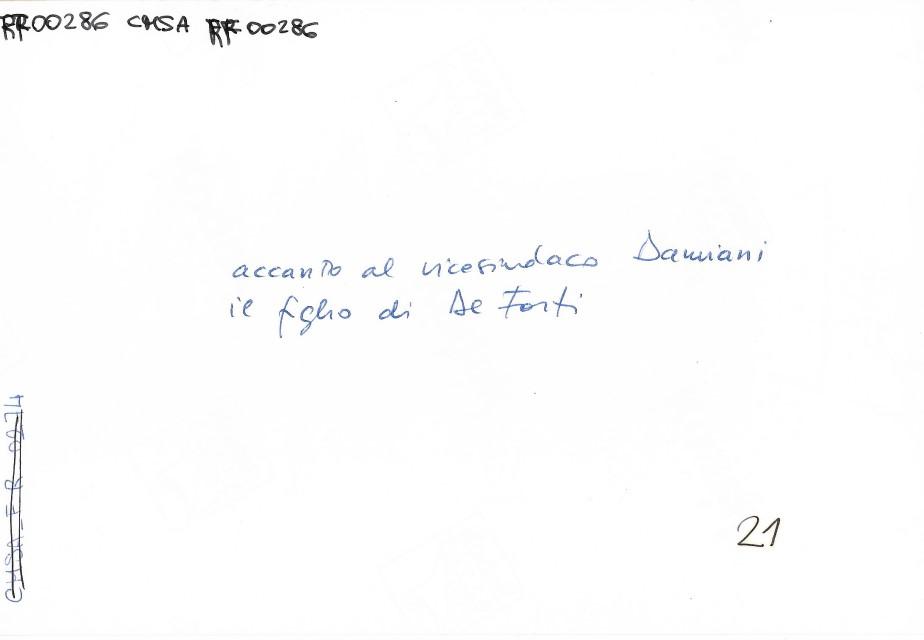 RR00286 CMSA RR00286
accanto al vicesindaco Damiani
il figlio di De Forti
21
CMSA_FR_0074